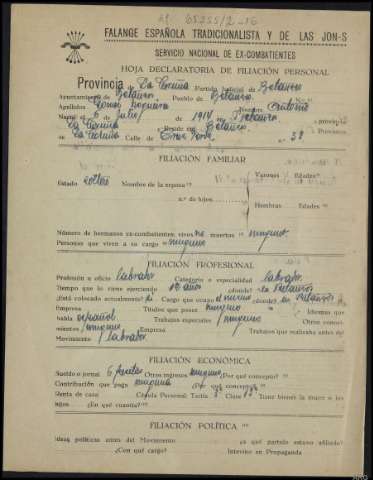 65255/2-16
FALANGE ESPAÑOLA TRADICIONALISTA Y DE LAS JON-S
SERVICIO NACIONAL DE EX-COMBATIENTES
HOJA DECLARATORIA DE FILIACIÓN PERSONAL
Provincia de La Coruña Partido Judicial de Betanzos
Ayuntamiento de Betanzos Pueblo de Betanzos
Apellidos Nombre Antonio
Nació el 6 de Julio de 1914 en Betanzos provincia
La Coruña Reside en Betanzos Provincia
La Coruña Calle de n.º 38
FILIACIÓN FAMILIAR
Estado soltero Nombre de la esposa Varones Edades
n.º de hijos
Hembras Edades
Número de hermanos ex-combatientes, vivos no muertos ninguno
Personas que viven a su cargo ninguno
FILIACIÓN PROFESIONAL
Profesión u oficio labrador Categoría o especialidad labrador
Tiempo que lo viene ejerciendo 10 años ¿dónde? en Betanzos
¿Está colocado actualmente? si Cargo que ocupa el mismo ¿dónde? en Betanzos
Empresa Títulos que posee ninguno Idiomas que
habla español Trabajos especiales ninguno Otros conoci-
mientos ninguno Empresa Trabajos que realizaba antes del
Movimiento labrador
FILIACIÓN ECONÓMICA
Sueldo o jornal 6 pesetas Otros ingresos ninguno ¿Por qué concepto?
Contribución que paga ninguna ¿Por qué concepto?
Renta de casa Cédula Personal Tarifa Clase 13 Tiene bienes la mujer o los
hijos ¿En qué cuantía?
FILIACIÓN POLÍTICA
Ideas políticas antes del Movimiento ¿a qué partido estuvo afiliado?
¿Con qué cargo? Intervino en Propaganda